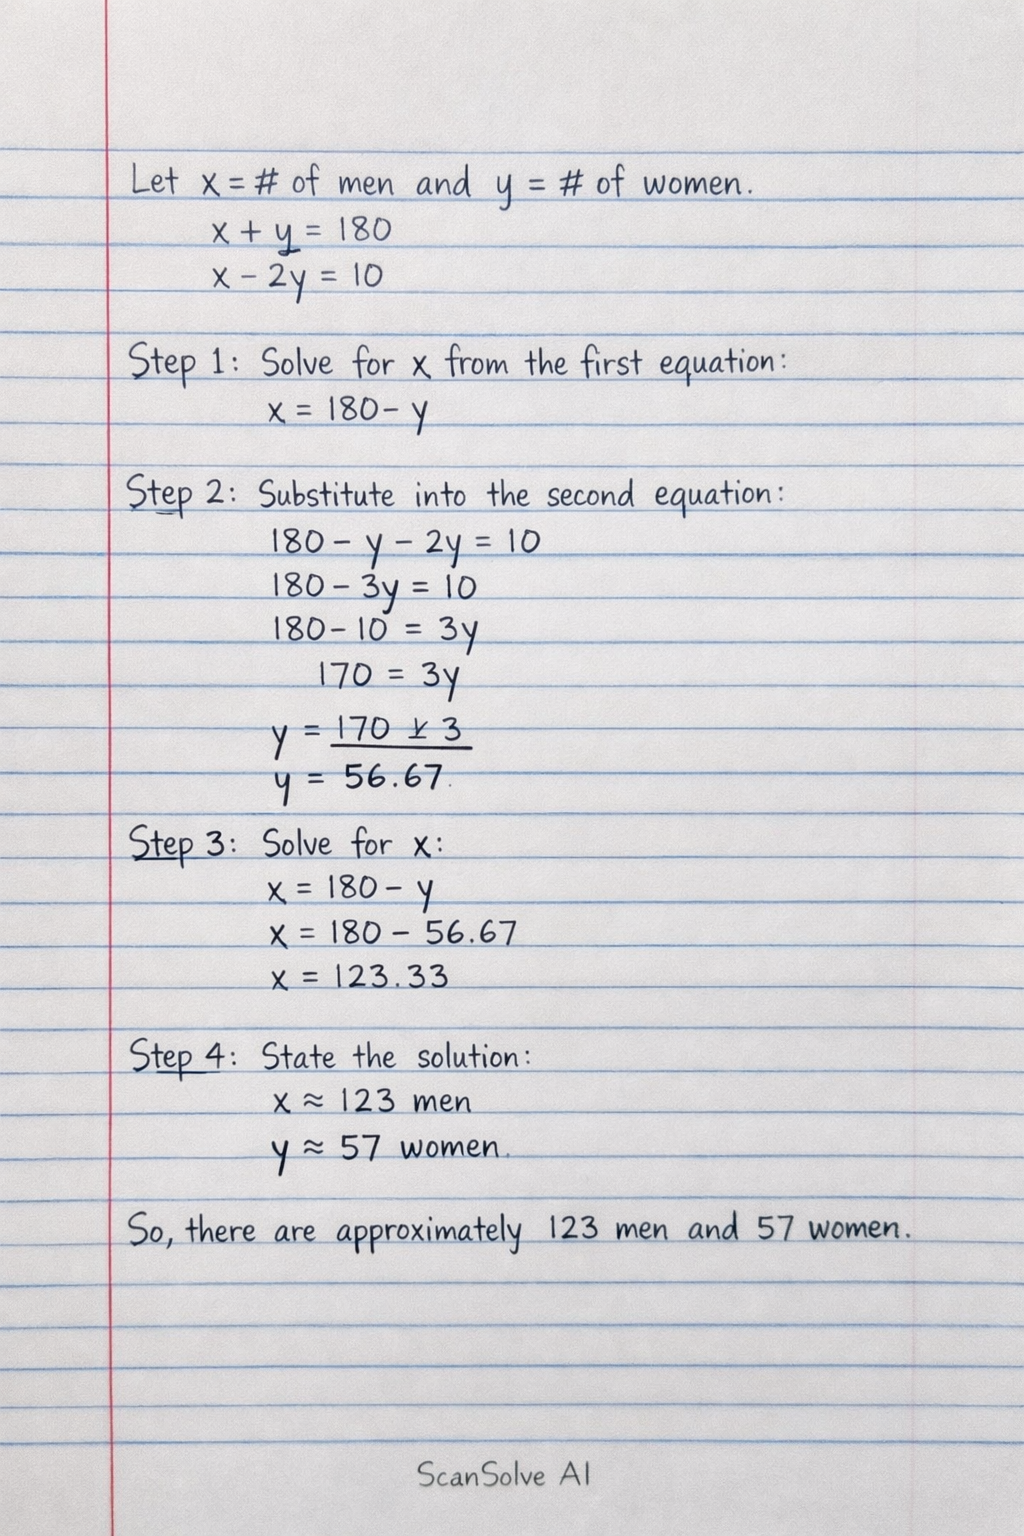 Let x = # of men and y = # of women.
x + y = 180
x - 2y = 10
Step 1: Solve for x from the first equation:
x = 180 - y
Step 2: Substitute into the second equation:
180 - y - 2y = 10
180 - 3y = 10
180 - 10 = 3y
170 = 3y
y = 170 3
y = 56.67.
Step 3: Solve for x:
x = 180 - y
x = 180 - 56.67
x = 123.33
Step 4: State the solution:
x ≈ 123 men
y ≈ 57 women.
So, there are approximately 123 men and 57 women.
ScanSolve AI